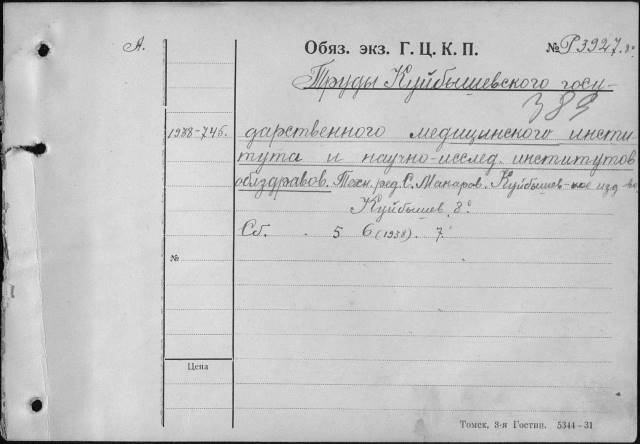 А.
Обяз. экз. Г. Ц. К. П. № Р3927.8°
Труды Куйбышевского госу-
389
1938-745. дарственного медицинского инсти
тута и научно-исслед. институтов
облздравов. Техн. ред. С. Макаров. Куйбышев-ное изд-во
Куйбышев 8°
Сб. . 5 6 (1938). 7.
№
Цена
Томск, 3-я Гостип. 5344–31